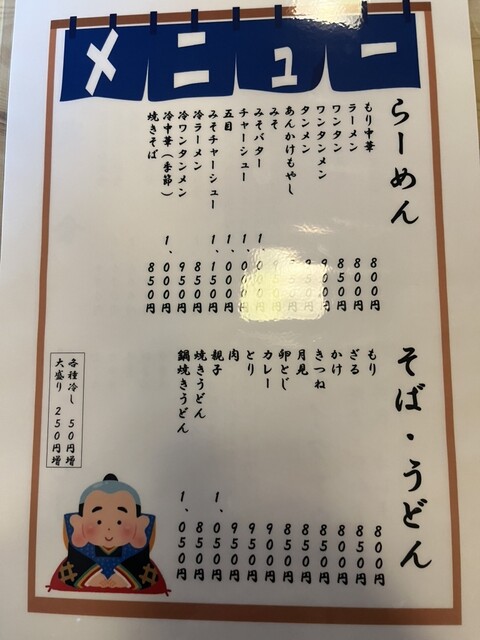 メニュー
らーめん
もり中華 800円
ラーメン 800円
ワンタン 850円
ワンタンメン
タンメン
あんかけもやし
みそ
みそバター
チャーシュー
五目 1、000円
みそチャーシュー 1、150円
冷ラーメン 850円
冷ワンタンメン 950円
冷中華（季節） 1、000円
焼きそば 850円
そば・うどん
もり 800円
ざる 850円
かけ 800円
きつね 850円
月見 850円
卵とじ 850円
カレー 900円
とり 950円
肉 950円
親子 1、050円
焼きうどん 850円
鍋焼きうどん 1、050円
各種冷し 50円増
大盛り 250円増